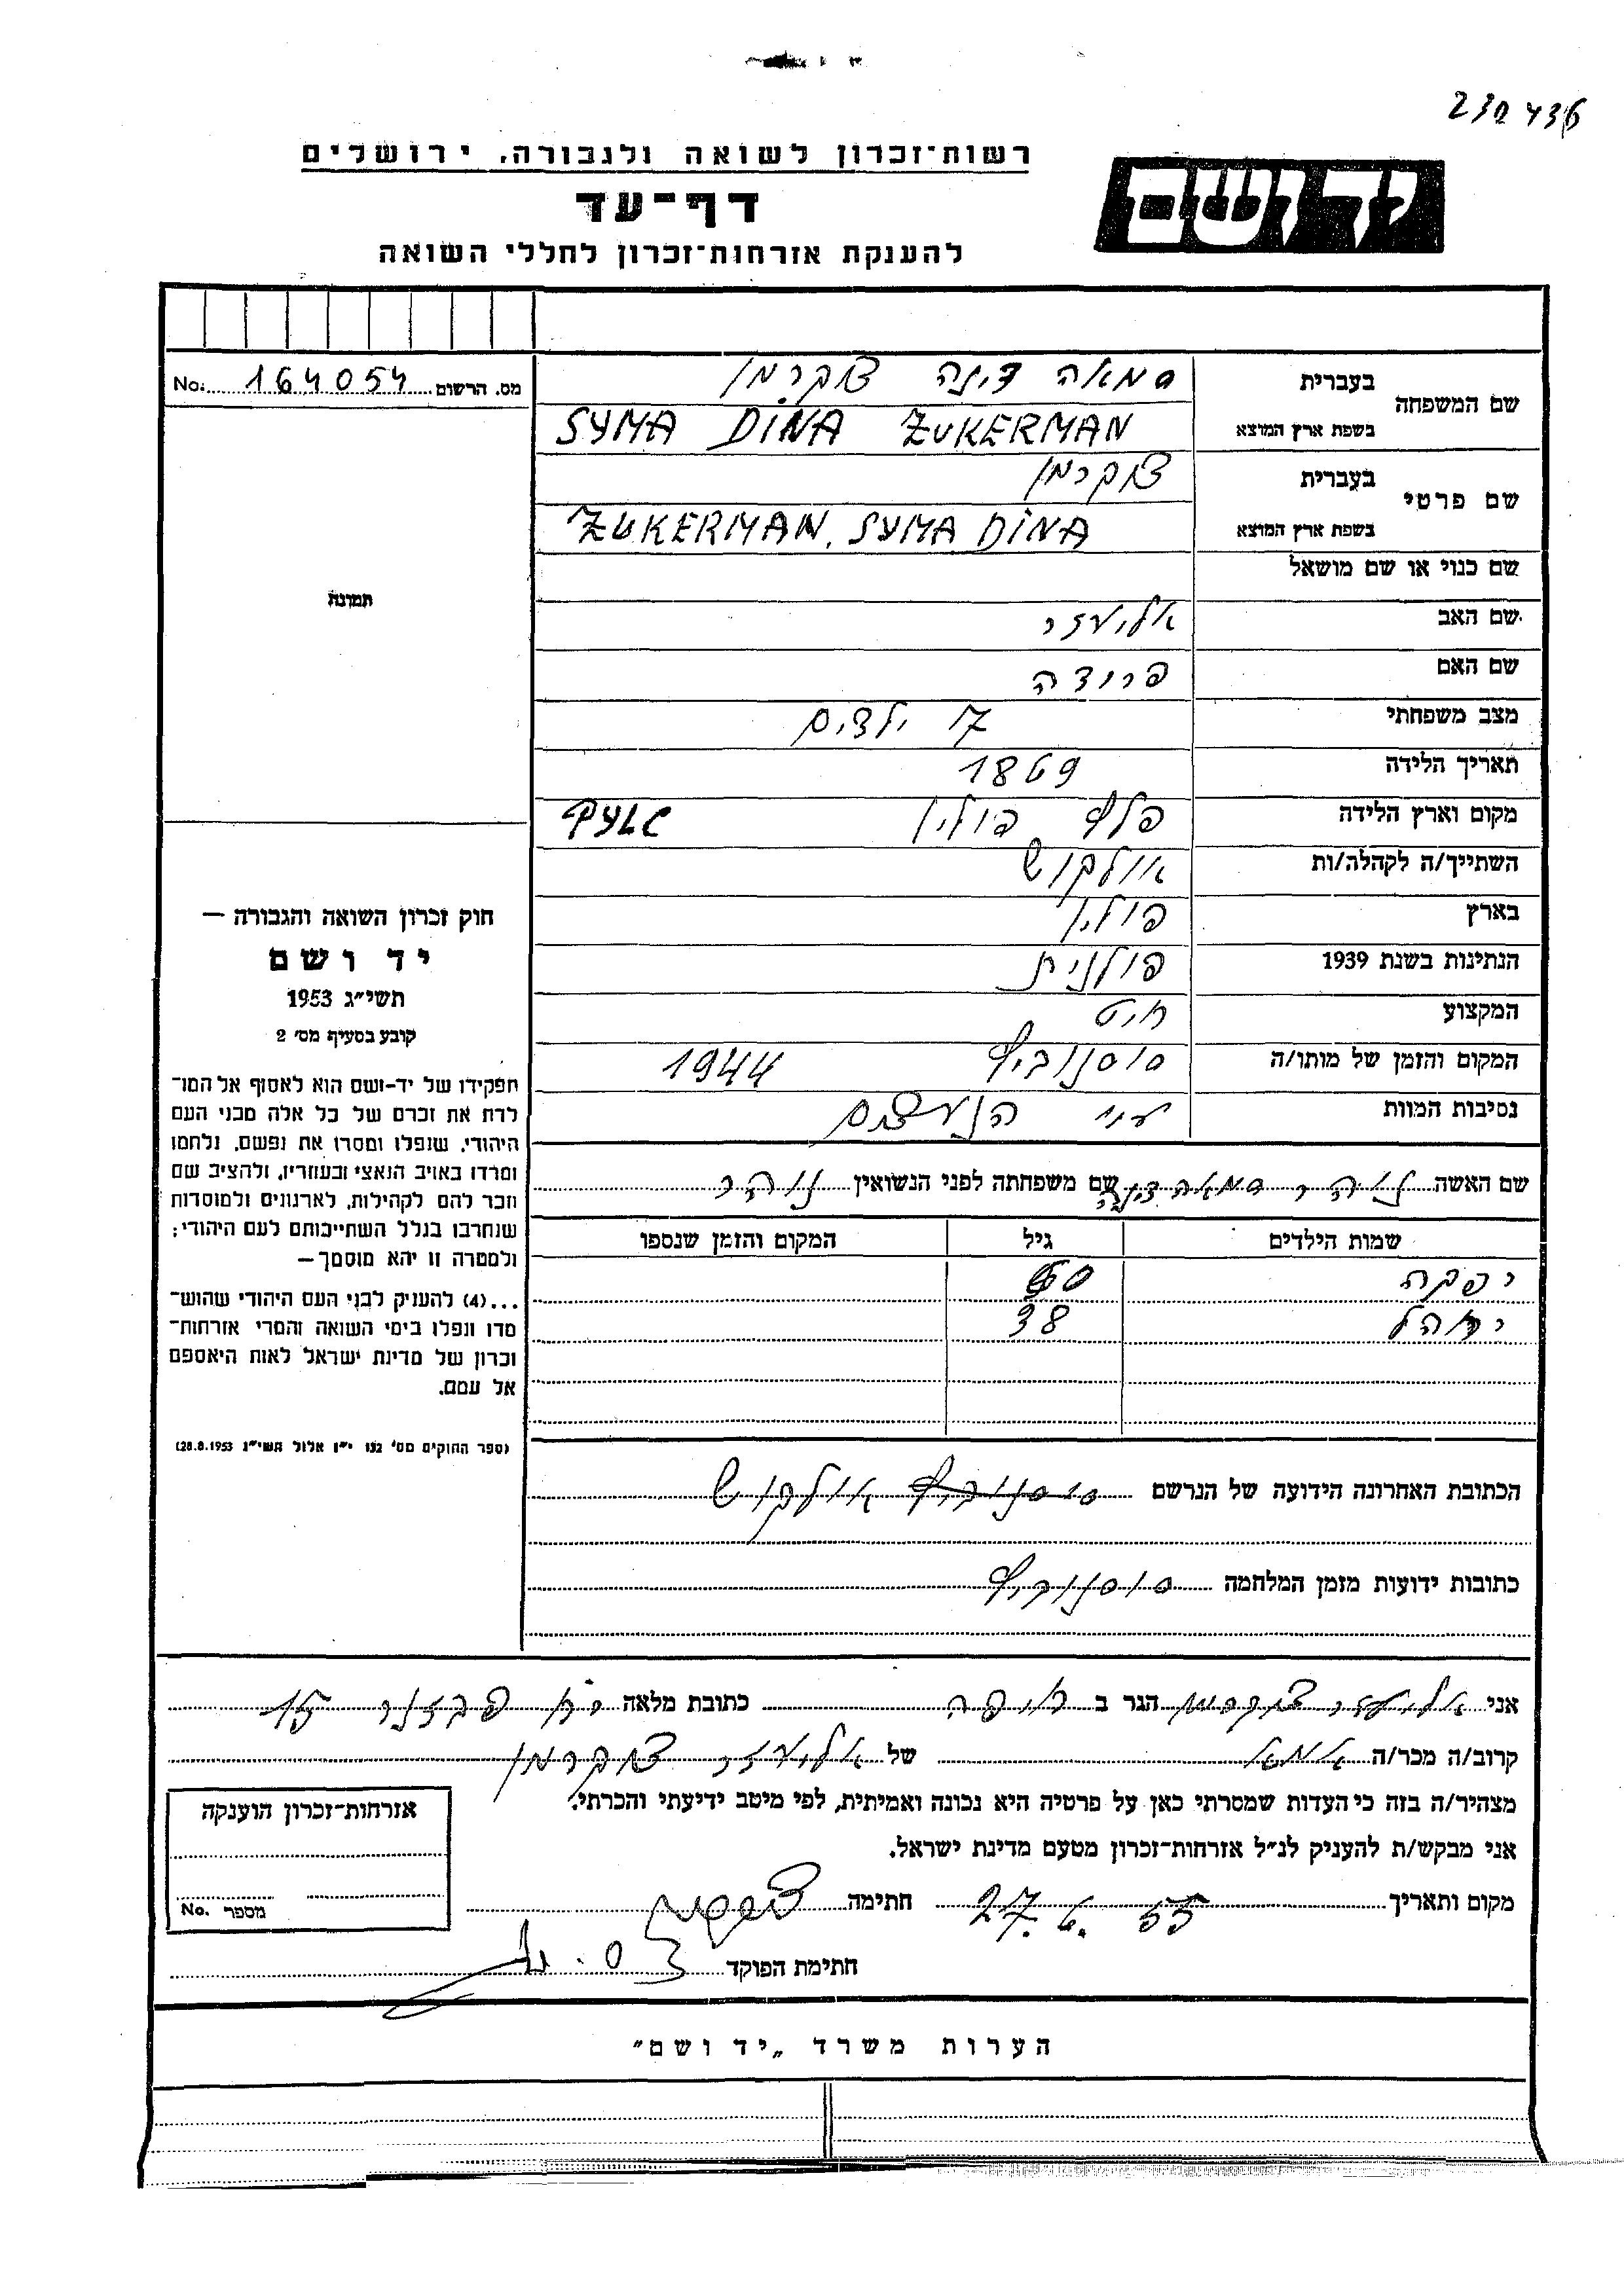 230436
רשות־זכרון לשואה ולגבורה, ירושלים
יד ושם
דף־עד
להענקת אזרחות־זכרון לחללי השואה
מס. הרשום 164054 No.
שם המשפחה
בעברית סמאה דינה צוקרמן
בשפת ארץ המוצא SYMA DINA ZUKERMAN
שם פרטי
בעברית צוקרמן
בשפת ארץ המוצא ZUKERMAN, SYMA DINA
שם כנוי או שם מושאל
שם האב אליעזר
שם האם פרודה
מצב משפחתי 7 ילדים
תאריך הלידה 1869
מקום וארץ הלידה פלץ פולין PYLC
השתייך/ה לקהלה/ות אולקוש
בארץ פולין
הנתינות בשנת 1939 פולנית
המקצוע חיט
המקום והזמן של מותו/ה סוסנוביץ 1944
נסיבות המוות עני הנאצים
שם האשה נוהר סמאה דינה שם משפחתה לפני הנשואין נוהר
שמות הילדים גיל המקום והזמן שנספו
יפקה 60
38
הכתובת האחרונה הידועה של הנרשם סוסנוביץ אולקוש
כתובות ידועות מזמן המלחמה סוסנוביץ
תמונה
חוק זכרון השואה והגבורה —
יד ושם
תשי״ג 1953
קובע בסעיף מס׳ 2
תפקידו של יד־ושם הוא לאסוף אל המו־
לדת את זכרם של כל אלה מבני העם
היהודי, שנפלו ומסרו את נפשם, נלחמו
ומרדו באויב הנאצי ובעוזריו, ולהציב שם
וזכר להם לקהילות, לארגונים ולמוסדות
שנחרבו בגלל השתייכותם לעם היהודי;
ולמטרה זו יהא מוסמך—
...(4) להעניק לבני העם היהודי שהוש־
מדו ונפלו בימי השואה והמרי אזרחות־
זכרון של מדינת ישראל לאות היאספם
אל עמם.
(ספר החוקים מס׳ 132 י״ז אלול תשי״ג 28.8.1953)
אני אליעזר צוקרמן הגר ב חיפה כתובת מלאה רח 15
קרוב/ה מכר/ה אמא של אליעזר צוקרמן
מצהיר/ה בזה כי העדות שמסרתי כאן על פרטיה היא נכונה ואמיתית, לפי מיטב ידיעתי והכרתי.
אני מבקש/ת להעניק לנ״ל אזרחות־זכרון מטעם מדינת ישראל.
מקום ותאריך 27.6.55 חתימה
חתימת הפוקד
אזרחות־זכרון הוענקה
מספר No.
הערות משרד „יד ושם״